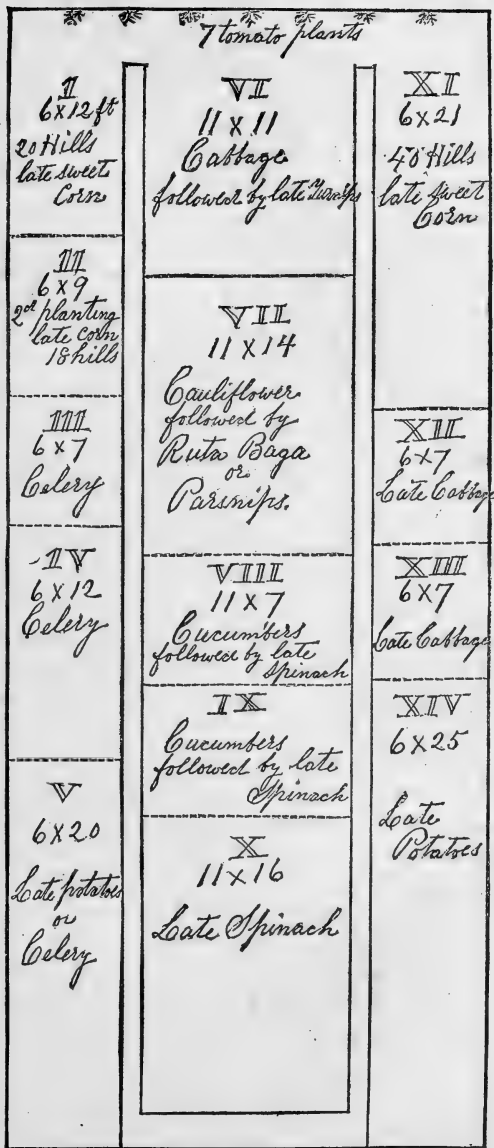 7 tomato plants
I
6 X 12 ft
20 Hills
late sweet
Corn
II
6 X 9
2d planting
late corn
18 hills
III
6 X 7
Celery
IV
6 X 12
Celery
V
6 X 20
Late potatoes
or
Celery
VI
11 X 11
Cabbage
followed by late Turnips
VII
11 X 14
Cauliflower
followed by
Ruta Baga
or
Parsnips.
VIII
11 X 7
Cucumbers
followed by late
Spinach
IX
Cucumbers
followed by late
Spinach
X
11 X 16
Late Spinach
XI
6 X 21
40 Hills
late sweet
Corn
XII
6 X 7
Late Cabbage
XIII
6 X 7
Late Cabbage
XIV
6 X 25
Late
Potatoes